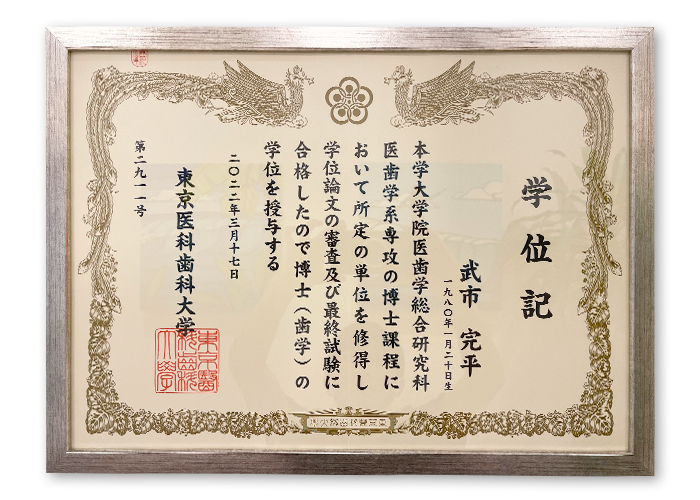 学位記
武市 完平
一九八〇年一月二十日生
本学大学院医歯学総合研究科
医歯学系専攻の博士課程に
おいて所定の単位を修得し
学位論文の審査及び最終試験に
合格したので博士（歯学）の
学位を授与する
二〇二二年三月十七日
東京医科歯科大学
第二九一一号